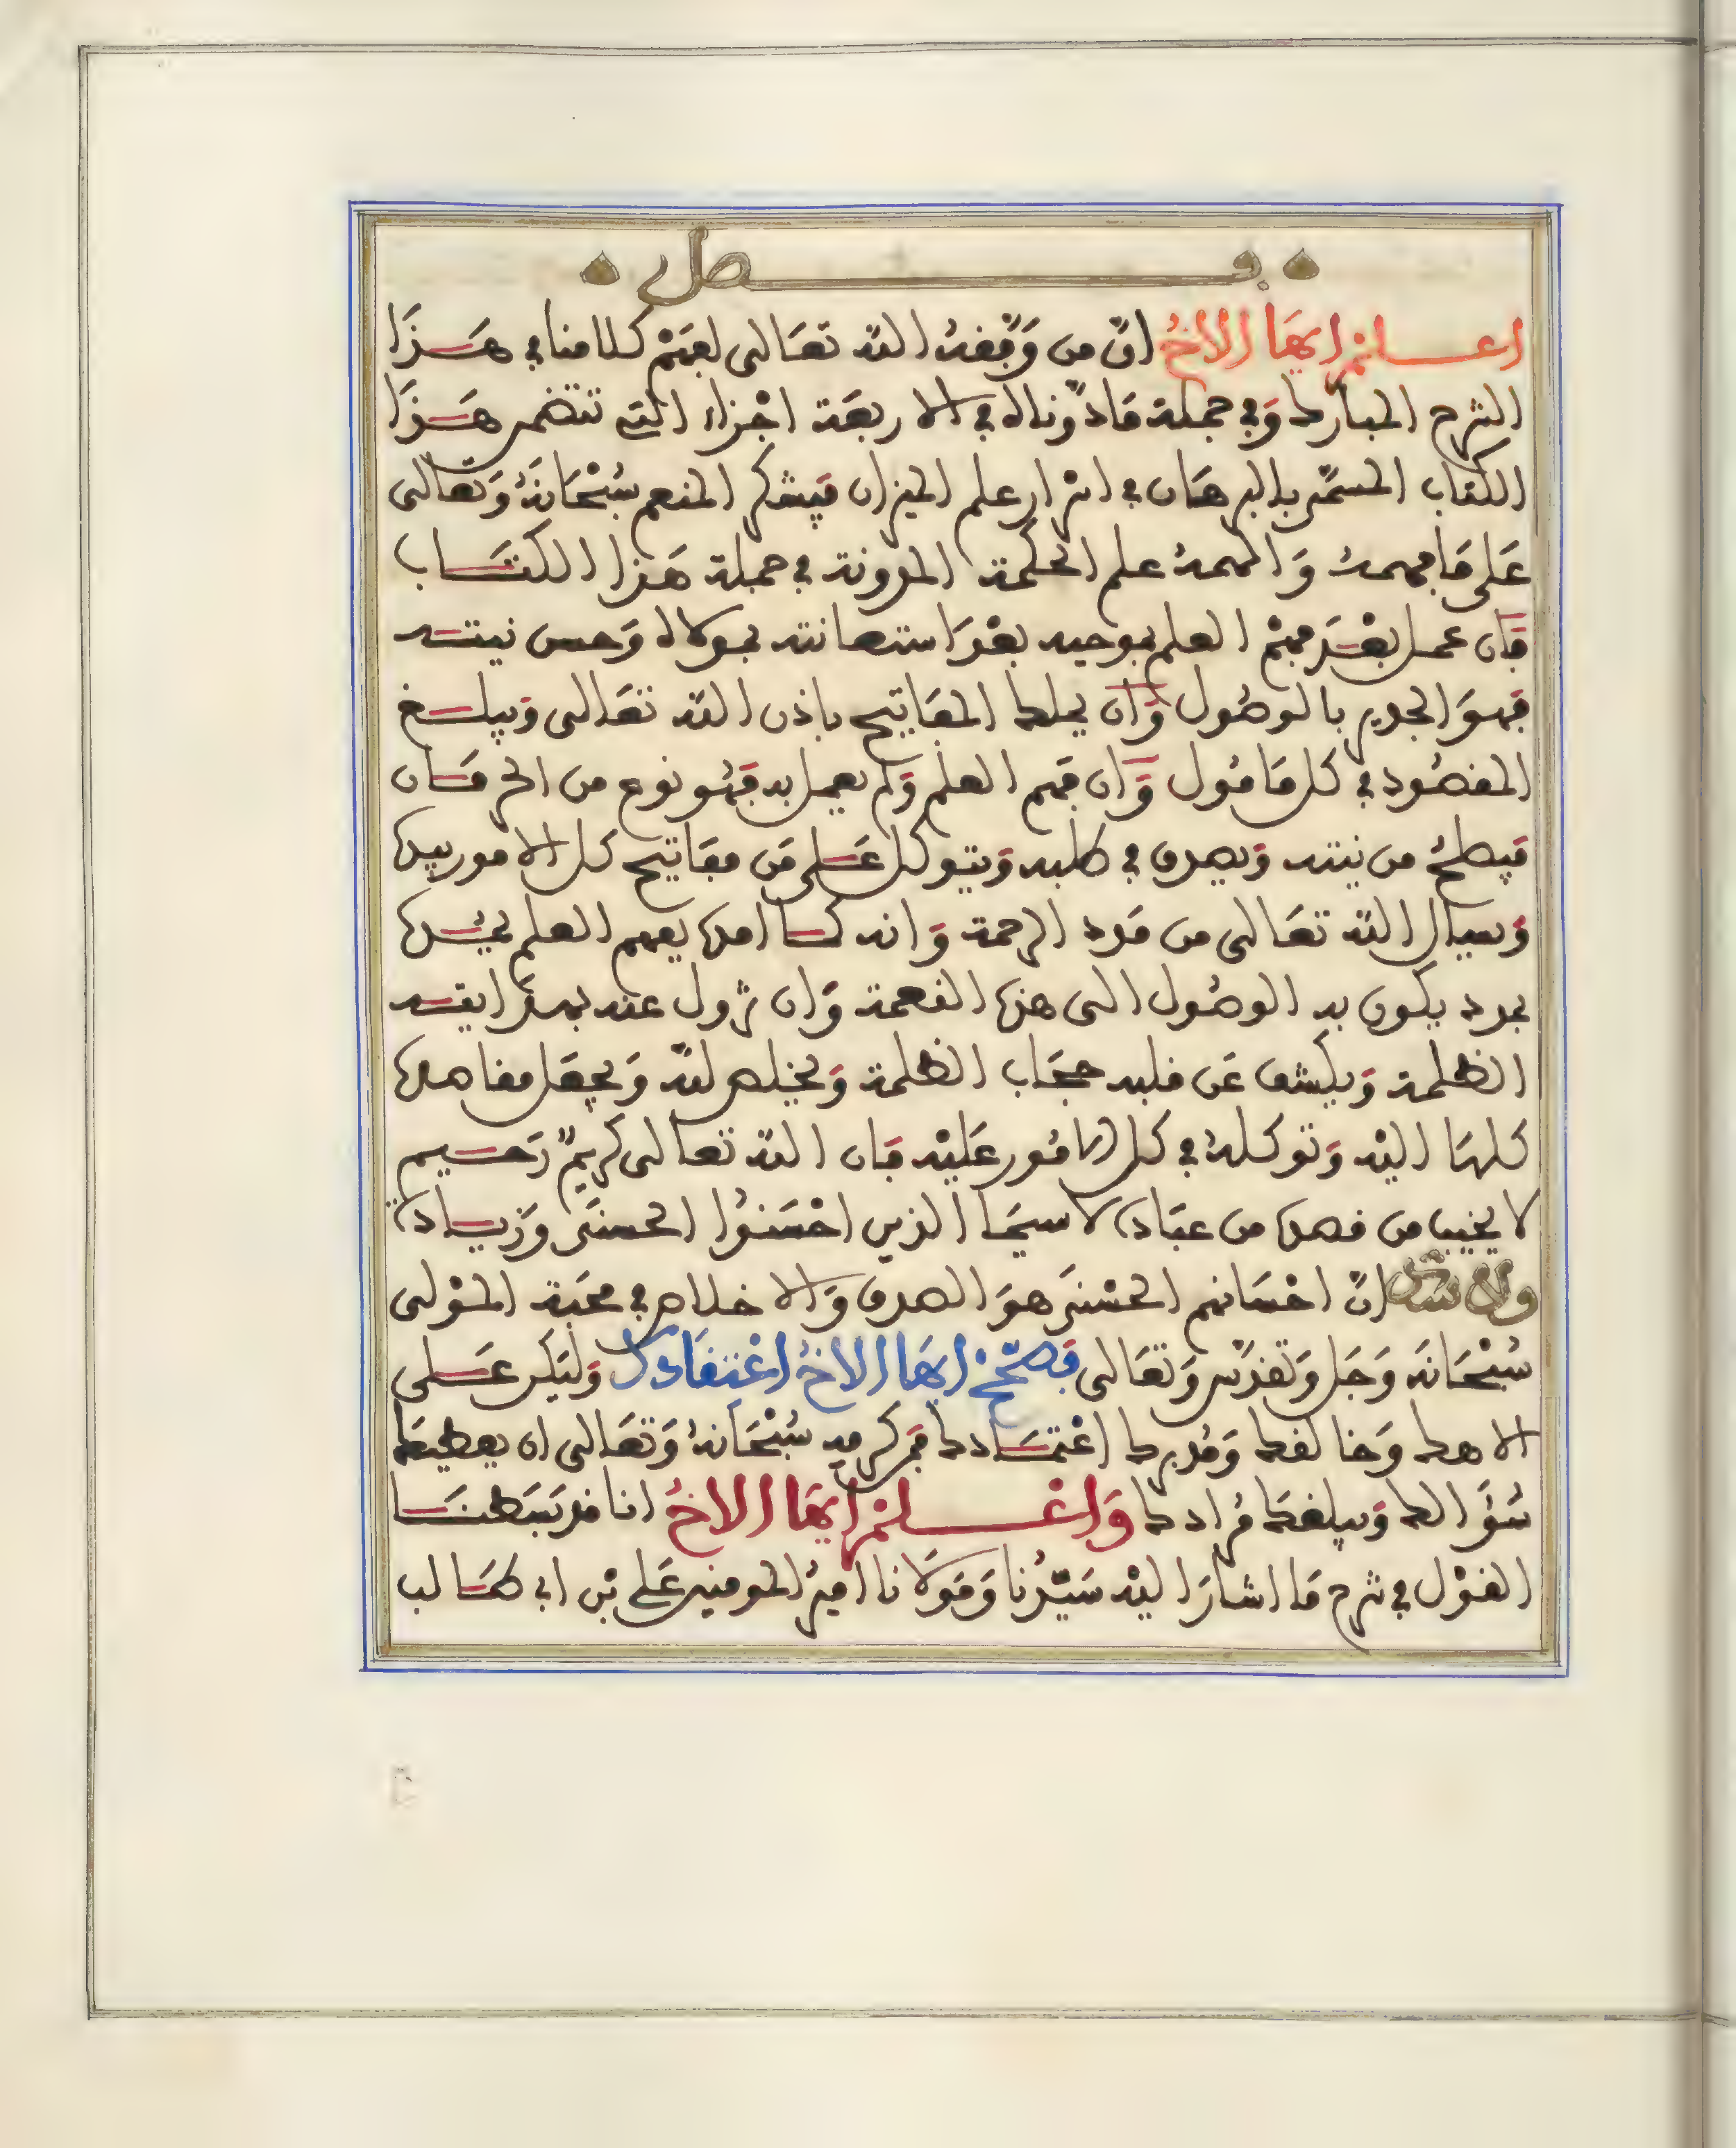 فصل
اعلم ايها الاخ انّ من وَفّقهُ الله تعَالى لفهم كلامنا في هَذَا
الشرح المبارك وَفي جملة مَا دوّناه في الاربعَة اجْزاء التي تتضمن هَذَا
الكتاب المسمّى بالبرهَان في اسْرار علم الميزان فيشكر المنعم سُبْحَانهُ وَتعَالى
عَلى مَا فهمهُ وَالهمهُ علم الحكمة المدونة في جملة هَذا الكتَاب
فان عمل بعْدَ فهْم العلم بموجبه بعْدَ استعانته بمولاه وَحسن نيته
فهوَ الجدير بالوصُول وَان يملك المفاتيح باذن الله تعَالى وَيبلغ
المقصُود في كل مَامُول وَان فهم العلم وَلم يعمل به فهُو نوع من الحرمَان
فيصلحُ من نيته وَيصدق في طلبه وَيتوكل عَلى مَن مفاتيح كل الامور بيده
وَيسال الله تعَالى من مَدد الرحمة وَانه كما امده بفهم العلم يمُده
بمدد يكون به الوصُول الى هذه النعمة وَان تزول عنه بهدَايته
الظلمة وَيكشف عَن قلبه حجَاب الظلمة وَيخلص لله وَيجعَل مقاصده
كلهَا اليْه وَتوكلهُ في كل الامُور عَليْه فان الله تعالى كريمٌ رَحيم
لا يخيب من قصده من عبَاده لا سيمَا الذين احْسَنوُا الحسنَى وَزيَادة
ولا شك انّ احْسَانهم الحسْنىَ هوَ الصدق وَالاخلاص في محَبة المَوْلى
سُبْحَانه وَجَل وَتقدّس وَتعَالى فصَحّحْ ايهَا الاخُ اعْتِقَادكَ وَليَكن عَلى
الاهك وَخالقك وَمُدبرك اعْتمَادك فمَن كرمِه سُبْحَانهُ وَتعَالى ان يعطيَك
سُؤَالك وَيبلغكَ مُرادك وَاعْلمْ ايهَا الاخُ انا قد بَسَطنَا
القوْل في شرح مَا اشارَ اليْه سَيّدُنا وَمَوْلانا اميرُ المومنين عَلي بْن ابي طَالب